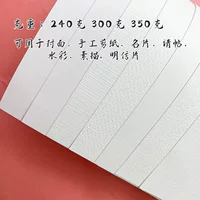 克重：240克 300克 350克
可用于封面、手工剪纸、名片、请帖、
水彩、素描、明信片